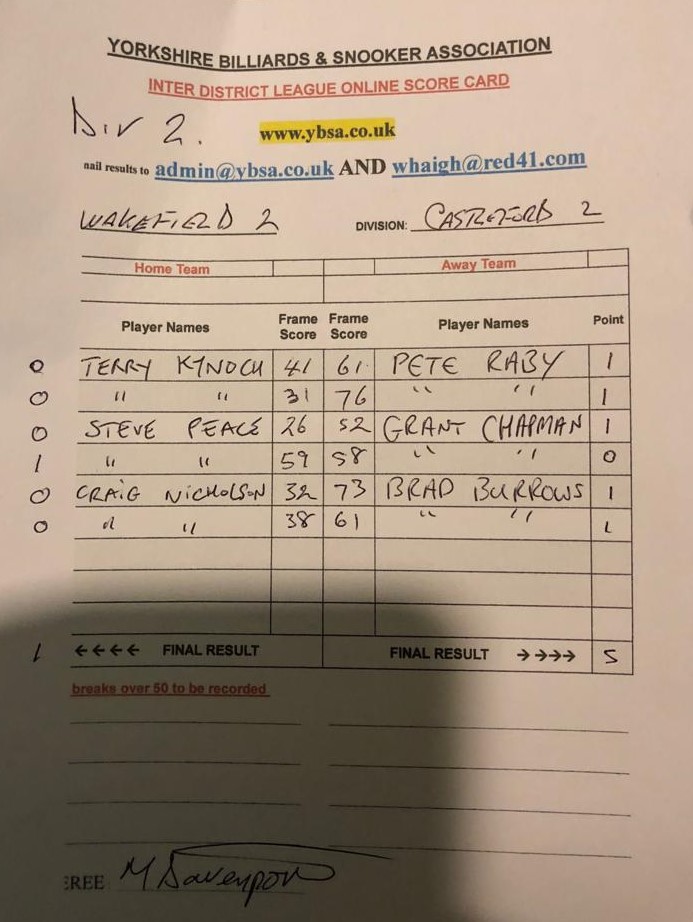 YORKSHIRE BILLIARDS & SNOOKER ASSOCIATION
INTER DISTRICT LEAGUE ONLINE SCORE CARD
Div 2.
www.ybsa.co.uk
nail results to admin@ybsa.co.uk AND whaigh@red41.com
WAKEFIELD 2 DIVISION: CASTLEFORD 2
Home Team Away Team
Player Names Frame Score Frame Score Player Names Point
0 TERRY KYNOCH 41 61 PETE RABY 1
0 " " 31 76 " " 1
0 STEVE PEACE 26 52 GRANT CHAPMAN 1
1 " " 59 58 " " 0
0 CRAIG NICHOLSON 32 73 BRAD BURROWS 1
0 " " 38 61 " " 1
1 ←←←← FINAL RESULT FINAL RESULT →→→→ 5
breaks over 50 to be recorded
EREE M Davenport